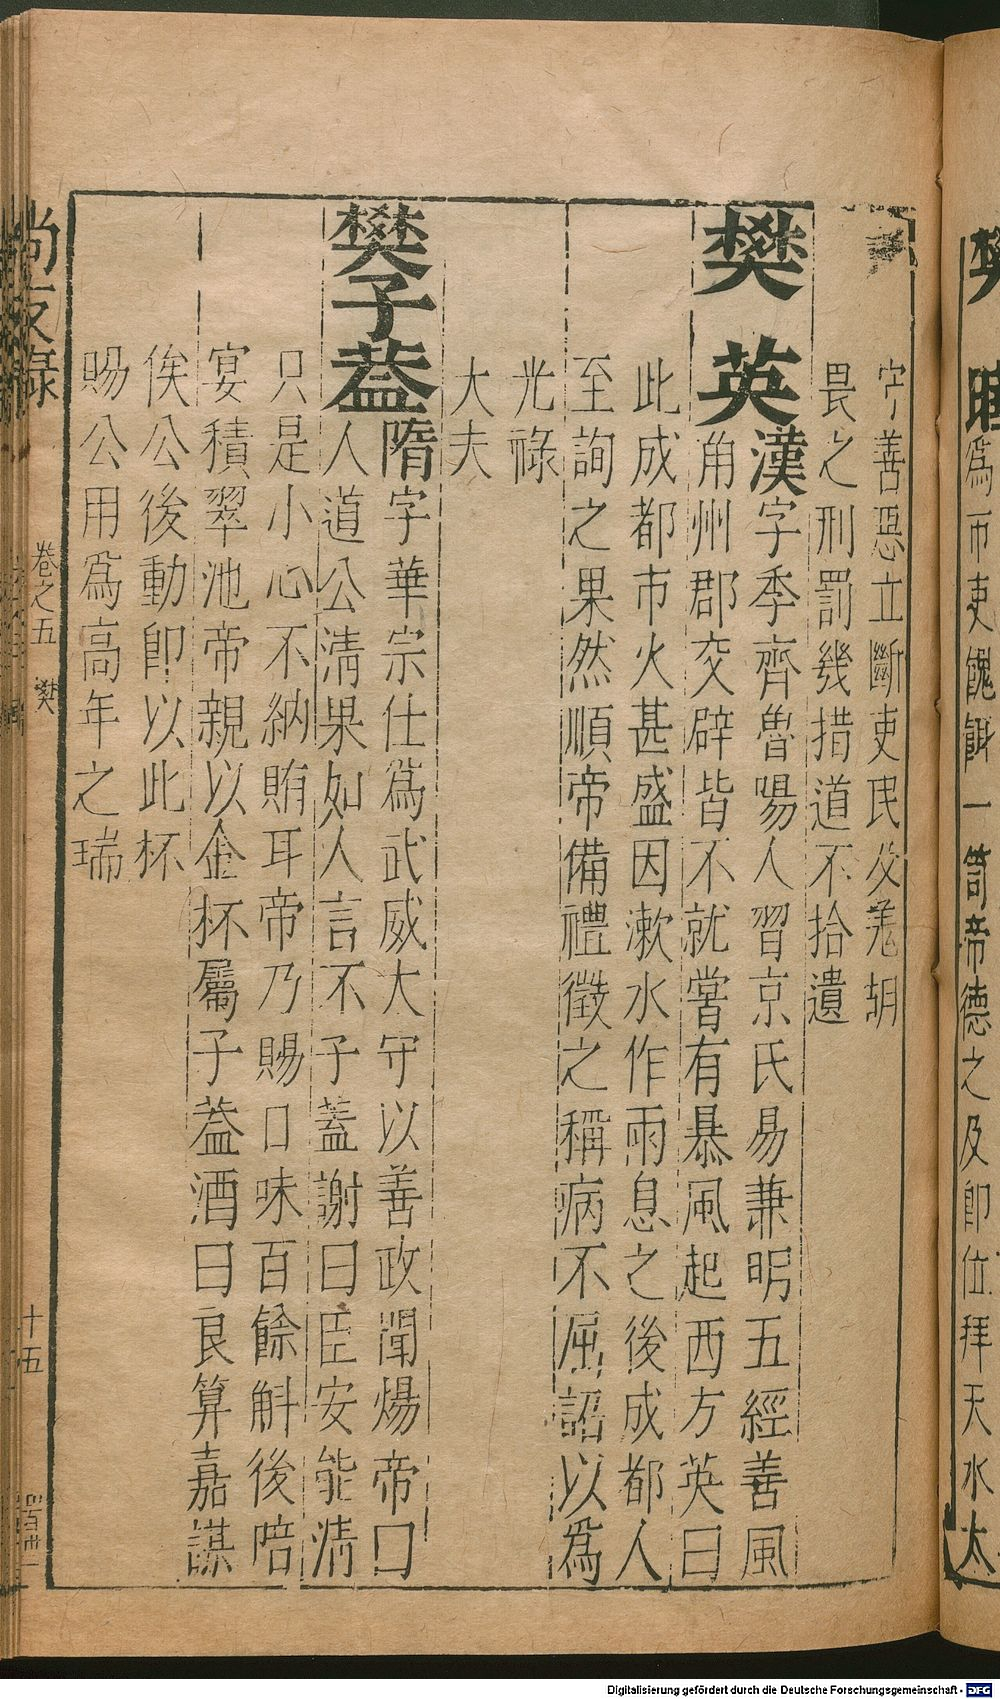 樊 曄 爲市吏餽餌一笥帝德之及即位拜天水太
守善惡立斷吏民及羌胡
畏之刑罰幾措道不拾遺
樊 英 漢字季齊魯陽人習京氏易兼明五經善風
角州郡交辟皆不就嘗有暴風起西方英曰
此成都市火甚盛因漱水作雨息之後成都人
至詢之果然順帝備禮徵之稱病不屈詔以爲
光祿
大夫
樊子蓋 隋字華宗仕爲武威大守以善政聞煬帝曰
人道公淸果如人言不子蓋謝曰臣安能淸
只是小心不納賄耳帝乃賜口味百餘斛後陪
宴積翠池帝親以金杯屬子蓋酒曰良算嘉謀
俟公後動卽以此杯
賜公用爲高年之瑞
尚友錄 卷之五 樊 十五
Digitalisierung gefördert durch die Deutsche Forschungsgemeinschaft - DFG